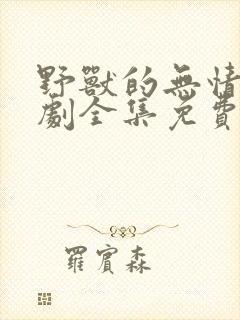 野獸的無情
劇全集免費
羅賓森